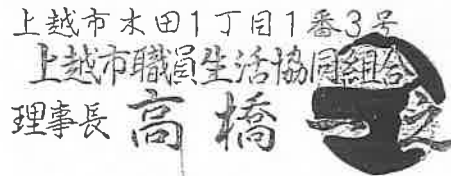 上越市木田1丁目1番3号
上越市職員生活協同組合
理事長 高橋